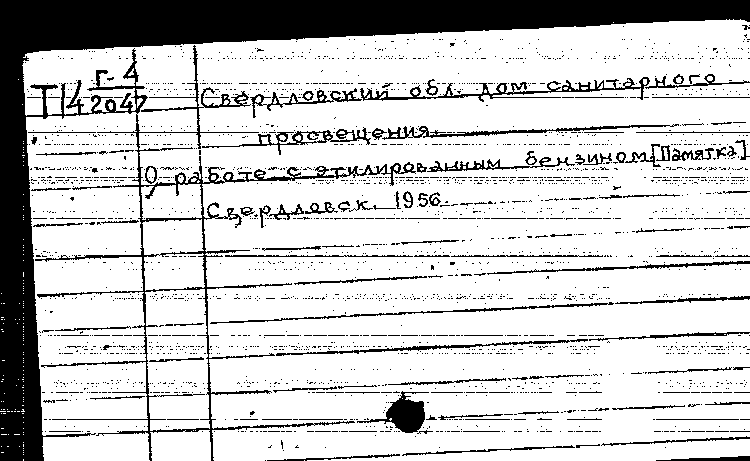 Г-4
П4 2047 Свердловский обл. дом санитарного
просвещения.
О работе с этилированным бензином [Памятка]
Свердловск. 1956